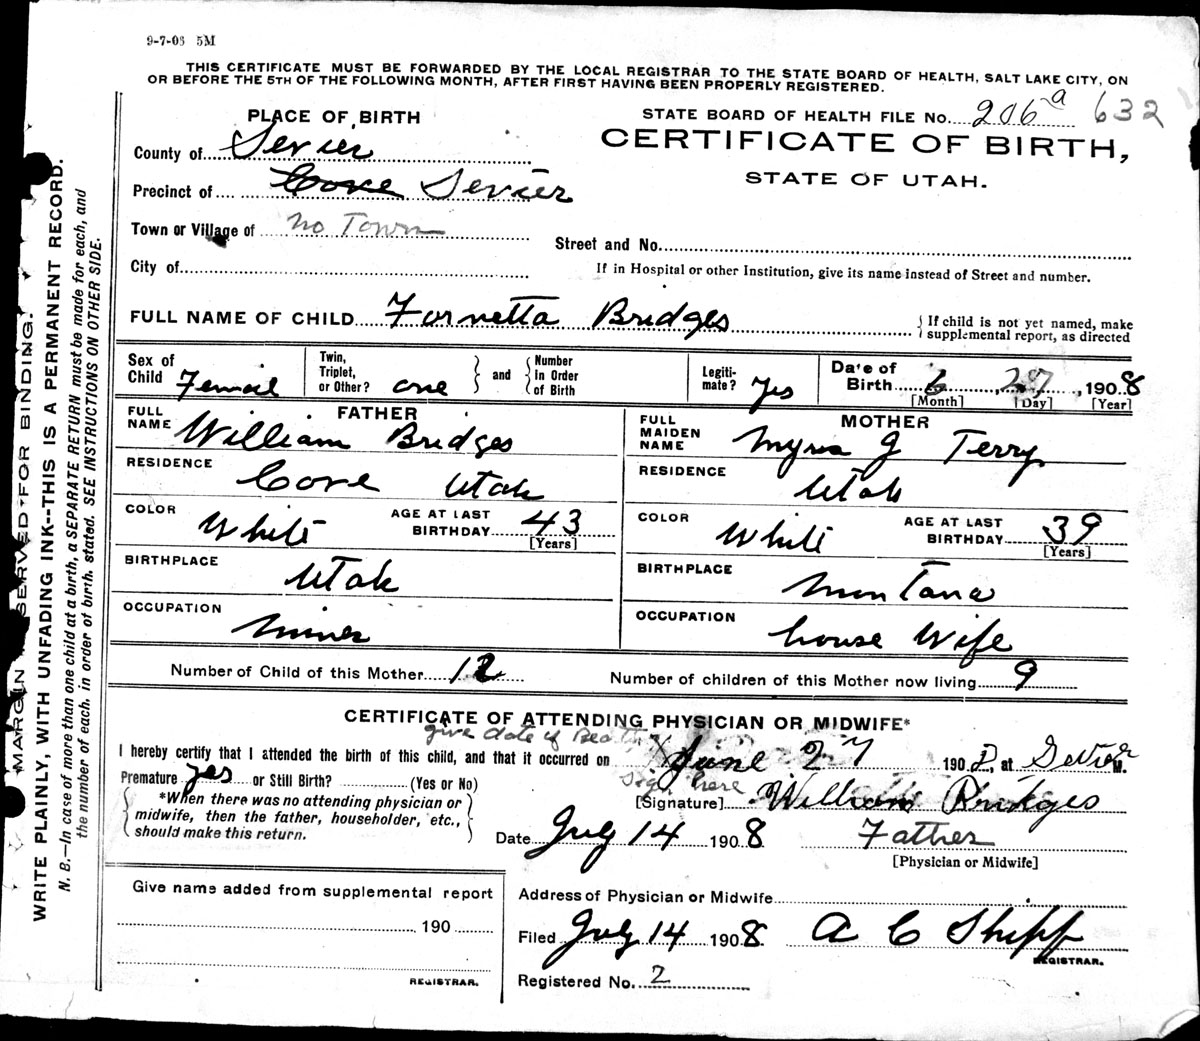 9-7-06 5M
THIS CERTIFICATE MUST BE FORWARDED BY THE LOCAL REGISTRAR TO THE STATE BOARD OF HEALTH, SALT LAKE CITY, ON
OR BEFORE THE 5TH OF THE FOLLOWING MONTH, AFTER FIRST HAVING BEEN PROPERLY REGISTERED.
PLACE OF BIRTH
STATE BOARD OF HEALTH FILE No. 206 a 632
County of Sevier
CERTIFICATE OF BIRTH,
STATE OF UTAH.
Precinct of Cove Sevier
Town or Village of no Town
Street and No.
City of
If in Hospital or other Institution, give its name instead of Street and number.
FULL NAME OF CHILD Fornetta Bridges
{ If child is not yet named, make
supplemental report, as directed
Sex of Child Femail
Twin, Triplet, or Other? one } and { Number In Order of Birth
Legiti-mate? Yes
Date of Birth 6 27, 1908
[Month] [Day] [Year]
FATHER
FULL NAME William Bridges
MOTHER
FULL MAIDEN NAME Myra J Terry
RESIDENCE Cove Utah
RESIDENCE Utah
COLOR White AGE AT LAST BIRTHDAY 43 [Years]
COLOR White AGE AT LAST BIRTHDAY 39 [Years]
BIRTHPLACE Utah
BIRTHPLACE Montana
OCCUPATION miner
OCCUPATION house Wife
Number of Child of this Mother 12
Number of children of this Mother now living 9
CERTIFICATE OF ATTENDING PHYSICIAN OR MIDWIFE*
give date of
I hereby certify that I attended the birth of this child, and that it occurred on June 27 190 , at Sevier M.
Premature yes or Still Birth? (Yes or No)
Sign here
[Signature] William Bridges
{ *When there was no attending physician or
midwife, then the father, householder, etc.,
should make this return. }
Date July 14 1908 Father
[Physician or Midwife]
Give name added from supplemental report
190
REGISTRAR.
Address of Physician or Midwife
Filed July 14 1908 A C Shipp
REGISTRAR.
Registered No. 2
MARGIN RESERVED FOR BINDING.
WRITE PLAINLY, WITH UNFADING INK--THIS IS A PERMANENT RECORD.
N. B.—In case of more than one child at a birth, a SEPARATE RETURN must be made for each, and
the number of each, in order of birth, stated. SEE INSTRUCTIONS ON OTHER SIDE.